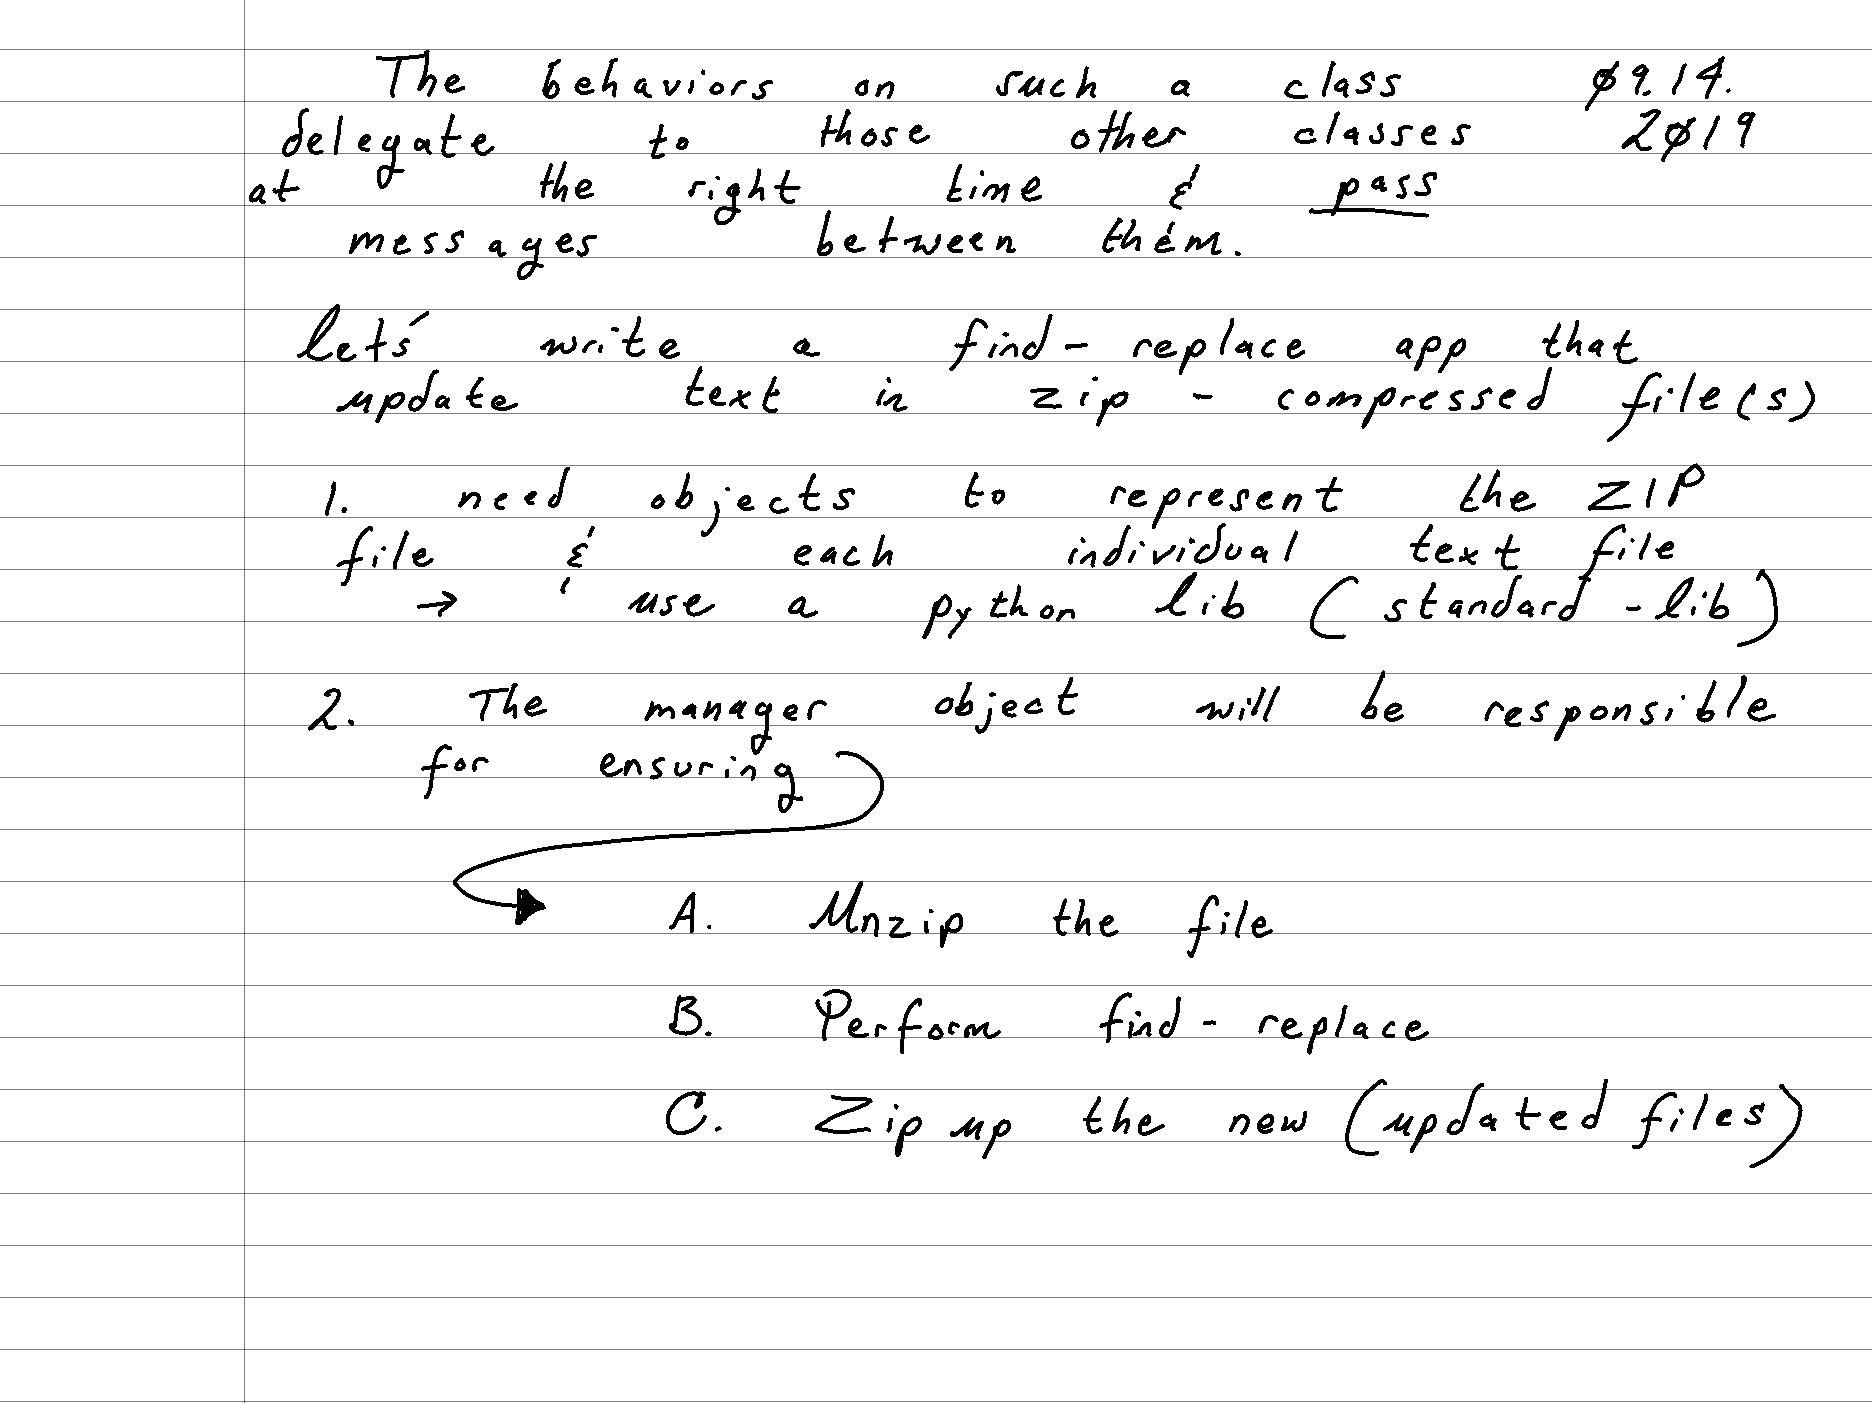 The behaviors on such a class ø9.14.
delegate to those other classes 2ø19
at the right time & pass
messages between them.
let's write a find-replace app that
update text in zip-compressed file(s)
1. need objects to represent the ZIP
file & each individual text file
→ use a python lib (standard-lib)
2. The manager object will be responsible
for ensuring
A. Unzip the file
B. Perform find-replace
C. Zip up the new (updated files)